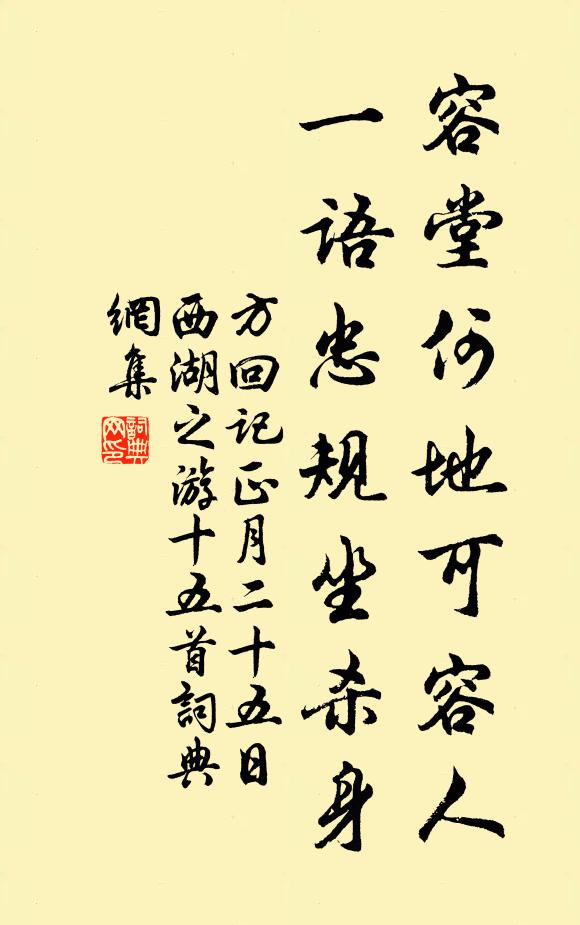 容堂何地可容人
一語忠規坐杀身
方回记正月二十五日
西湖之游十五首詞典
網集
詞典
网印